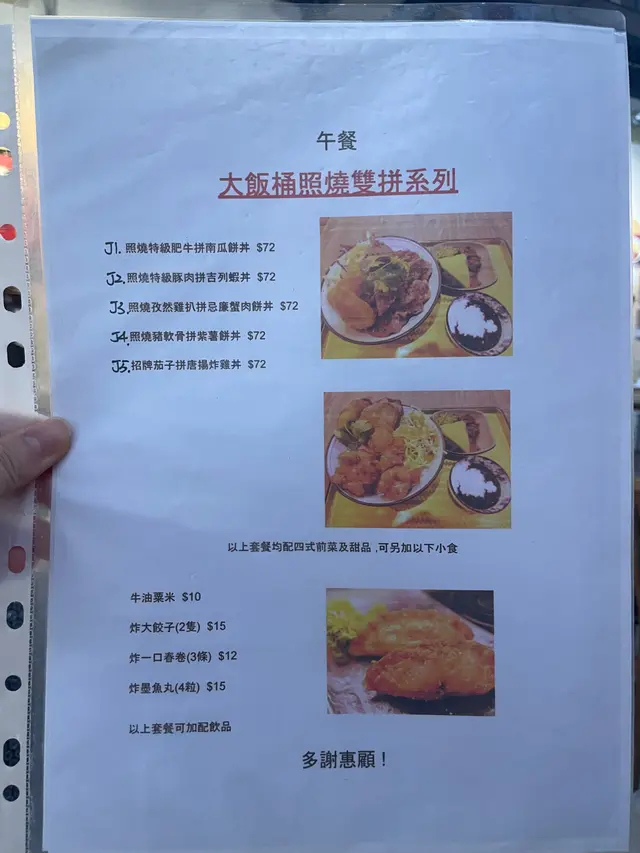 午餐
大飯桶照燒雙拼系列
J1. 照燒特級肥牛拼南瓜餅丼 $72
J2. 照燒特級豚肉拼吉列蝦丼 $72
J3. 照燒孜然雞扒拼忌廉蟹肉餅丼 $72
J4. 照燒豬軟骨拼紫薯餅丼 $72
J5. 招牌茄子拼唐揚炸雞丼 $72
以上套餐均配四式前菜及甜品 ,可另加以下小食
牛油粟米 $10
炸大餃子(2隻) $15
炸一口春卷(3條) $12
炸墨魚丸(4粒) $15
以上套餐可加配飲品
多謝惠顧 !